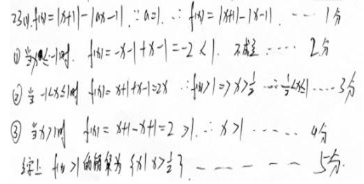 23.(1) f(x)=|x+1|-|ax-1| ∵a=1. ∴ f(x)=|x+1|-|x-1|. ····· 1分
① 当x≤-1时. f(x)=-x-1+x-1=-2<1. 不成立 ····· 2分
② 当 -1<x≤1时 f(x)=x+1+x-1=2x ∴f(x)>1 => x>1/2 ∴1/2<x≤1 ····· 3分
③ 当x>1时 f(x)=x+1-x+1=2>1. ∴x>1 ······ 4分
综上 f(x)>1的解集为{x|x>1/2} ------ 5分.